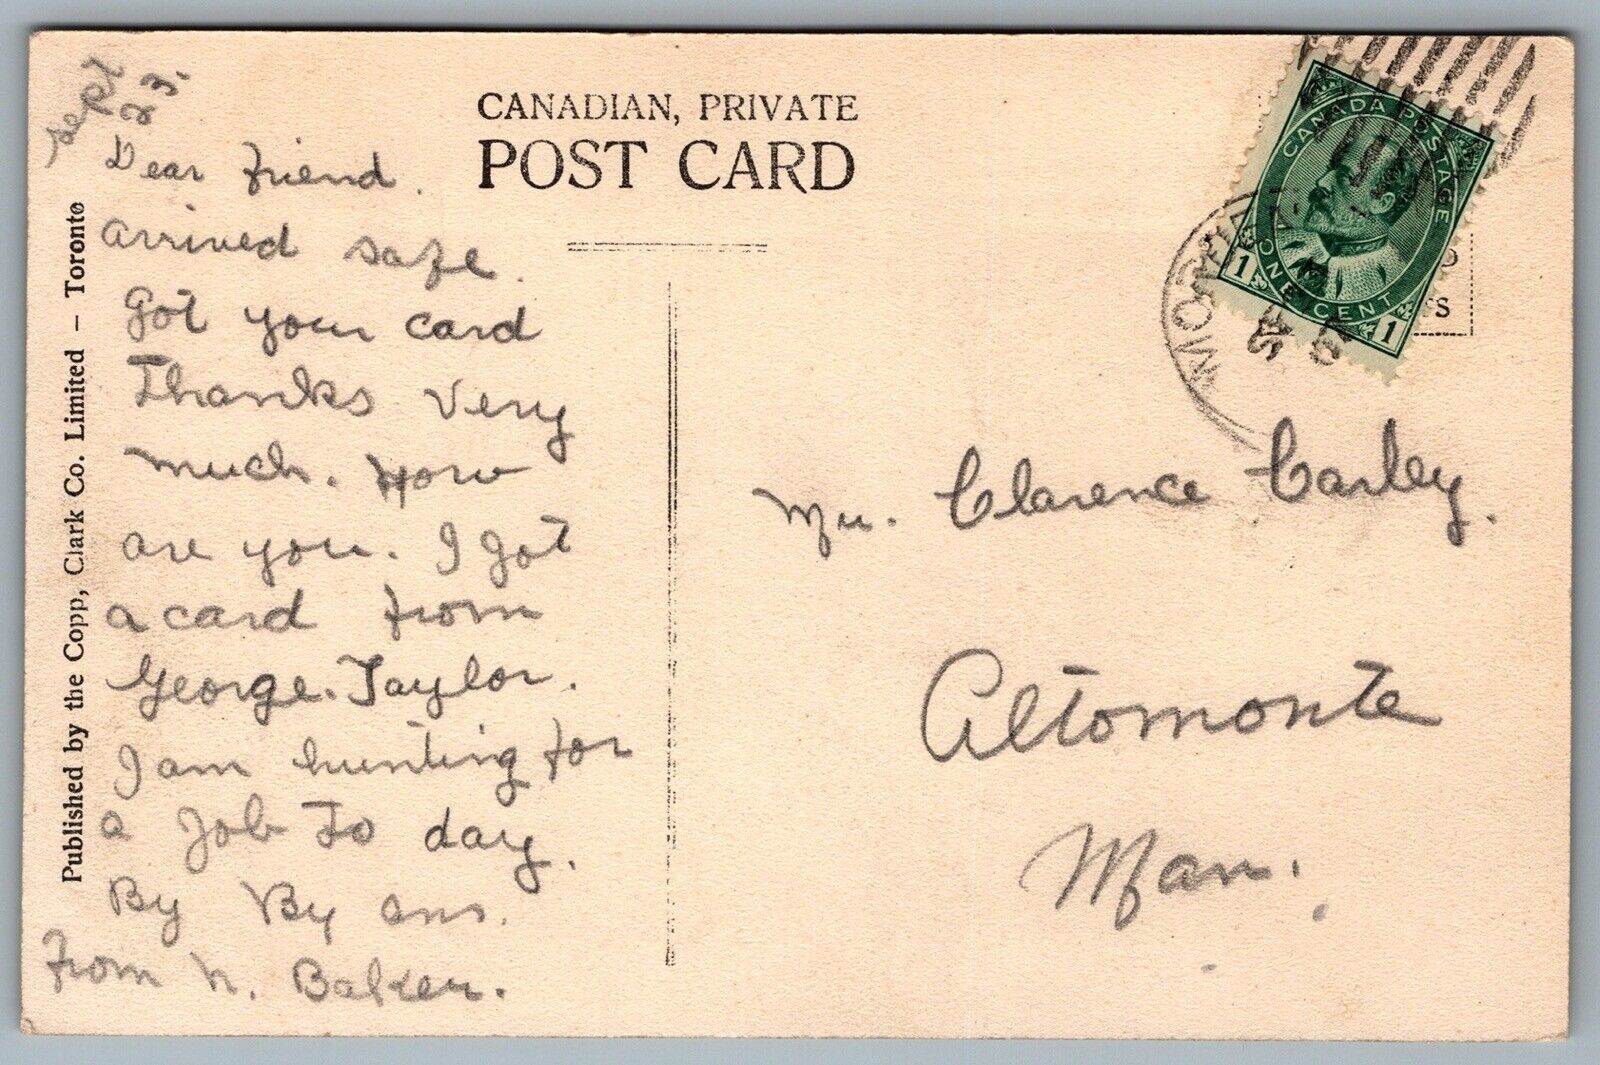 Sept
23.
Dear Friend.
arrived safe.
Got your card
Thanks Very
much. How
are you. I got
a card from
George. Taylor.
I am hunting for
a Job To day.
By By ans.
From N. Baker.
Published by the Copp, Clark Co. Limited – Toronto
CANADIAN, PRIVATE
POST CARD
CANADA POSTAGE
ONE CENT
1
1
SP
07
S
Mr. Clarence Carley.
Altomonte
Man.